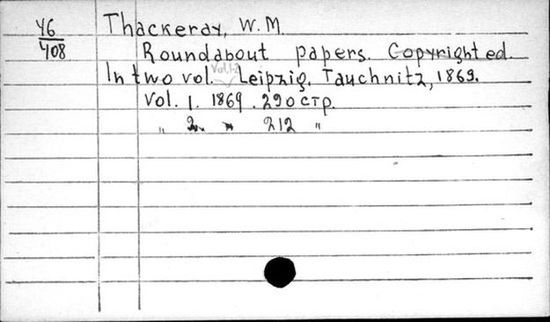 46
408
Thackeray, W. M.
Roundabout papers. Copyright ed.
In two vol. Vol. 1-2 Leipzig, Tauchnitz, 1869.
Vol. 1. 1869. 290 стр.
„ 2. „ 212 „